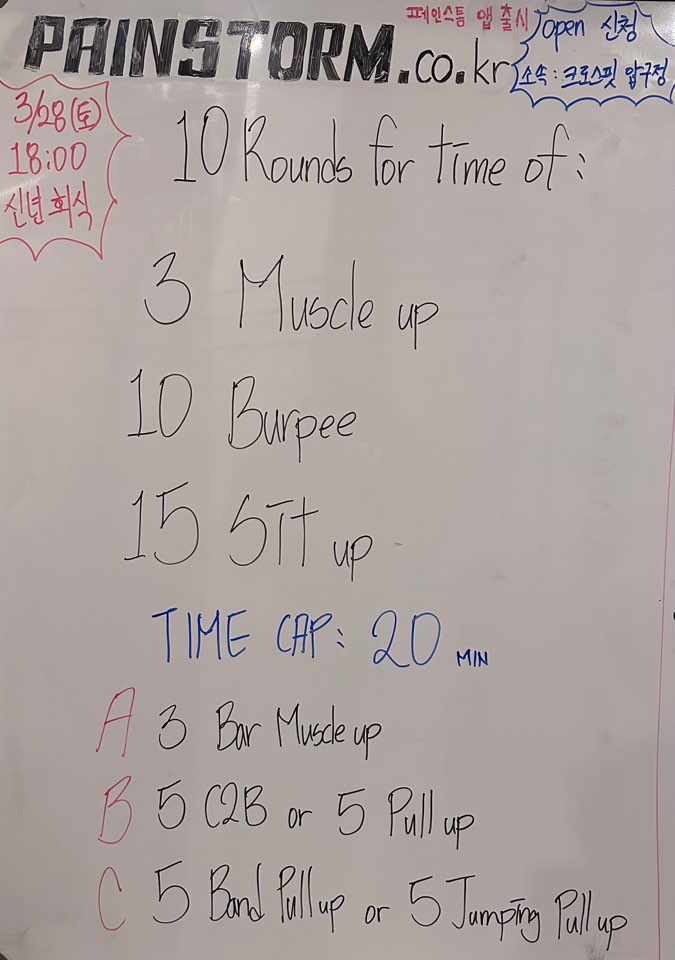 페인스톰 앱 출시
PAINSTORM.co.kr
Open 신청
소속 : 크로스핏 압구정
3/28(토)
18:00
신년회식
10 Rounds for time of :
3 Muscle up
10 Burpee
15 Sit up
TIME CAP : 20 MIN
A 3 Bar Muscle up
B 5 C2B or 5 Pull up
C 5 Band Pull up or 5 Jumping Pull up